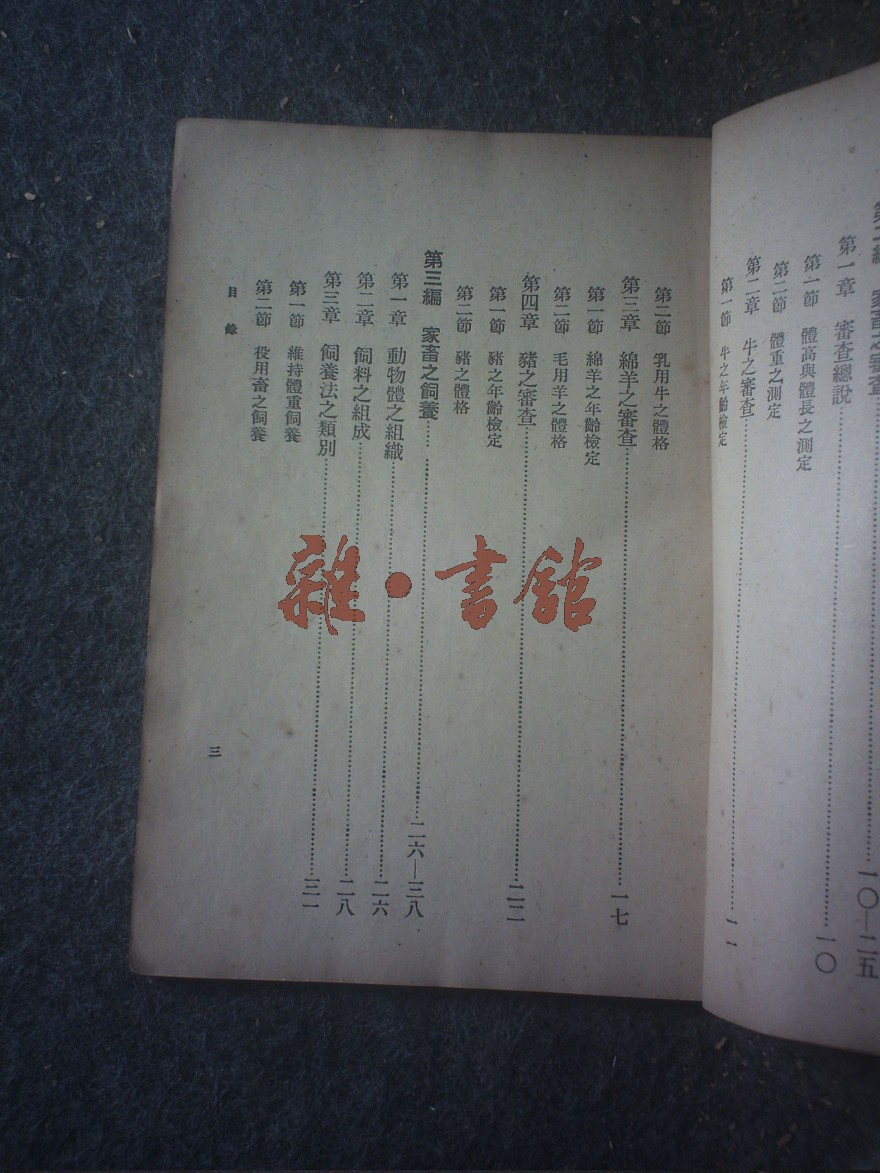 第二編 家畜之審查……一〇—二五
第一章 審查總說……一〇
第一節 體高與體長之測定
第二節 體重之測定
第二章 牛之審查……一一
第一節 牛之年齡檢定
第二節 乳用牛之體格
第三章 綿羊之審查……一七
第一節 綿羊之年齡檢定
第二節 毛用羊之體格
第四章 豬之審查……二二
第一節 豬之年齡檢定
第二節 豬之體格
第三編 家畜之飼養……二六—三八
第一章 動物體之組織……二六
第二章 飼料之組成……二八
第三章 飼養法之類別……三一
第一節 維持體重飼養
第二節 役用畜之飼養
目錄
三
雜·書館